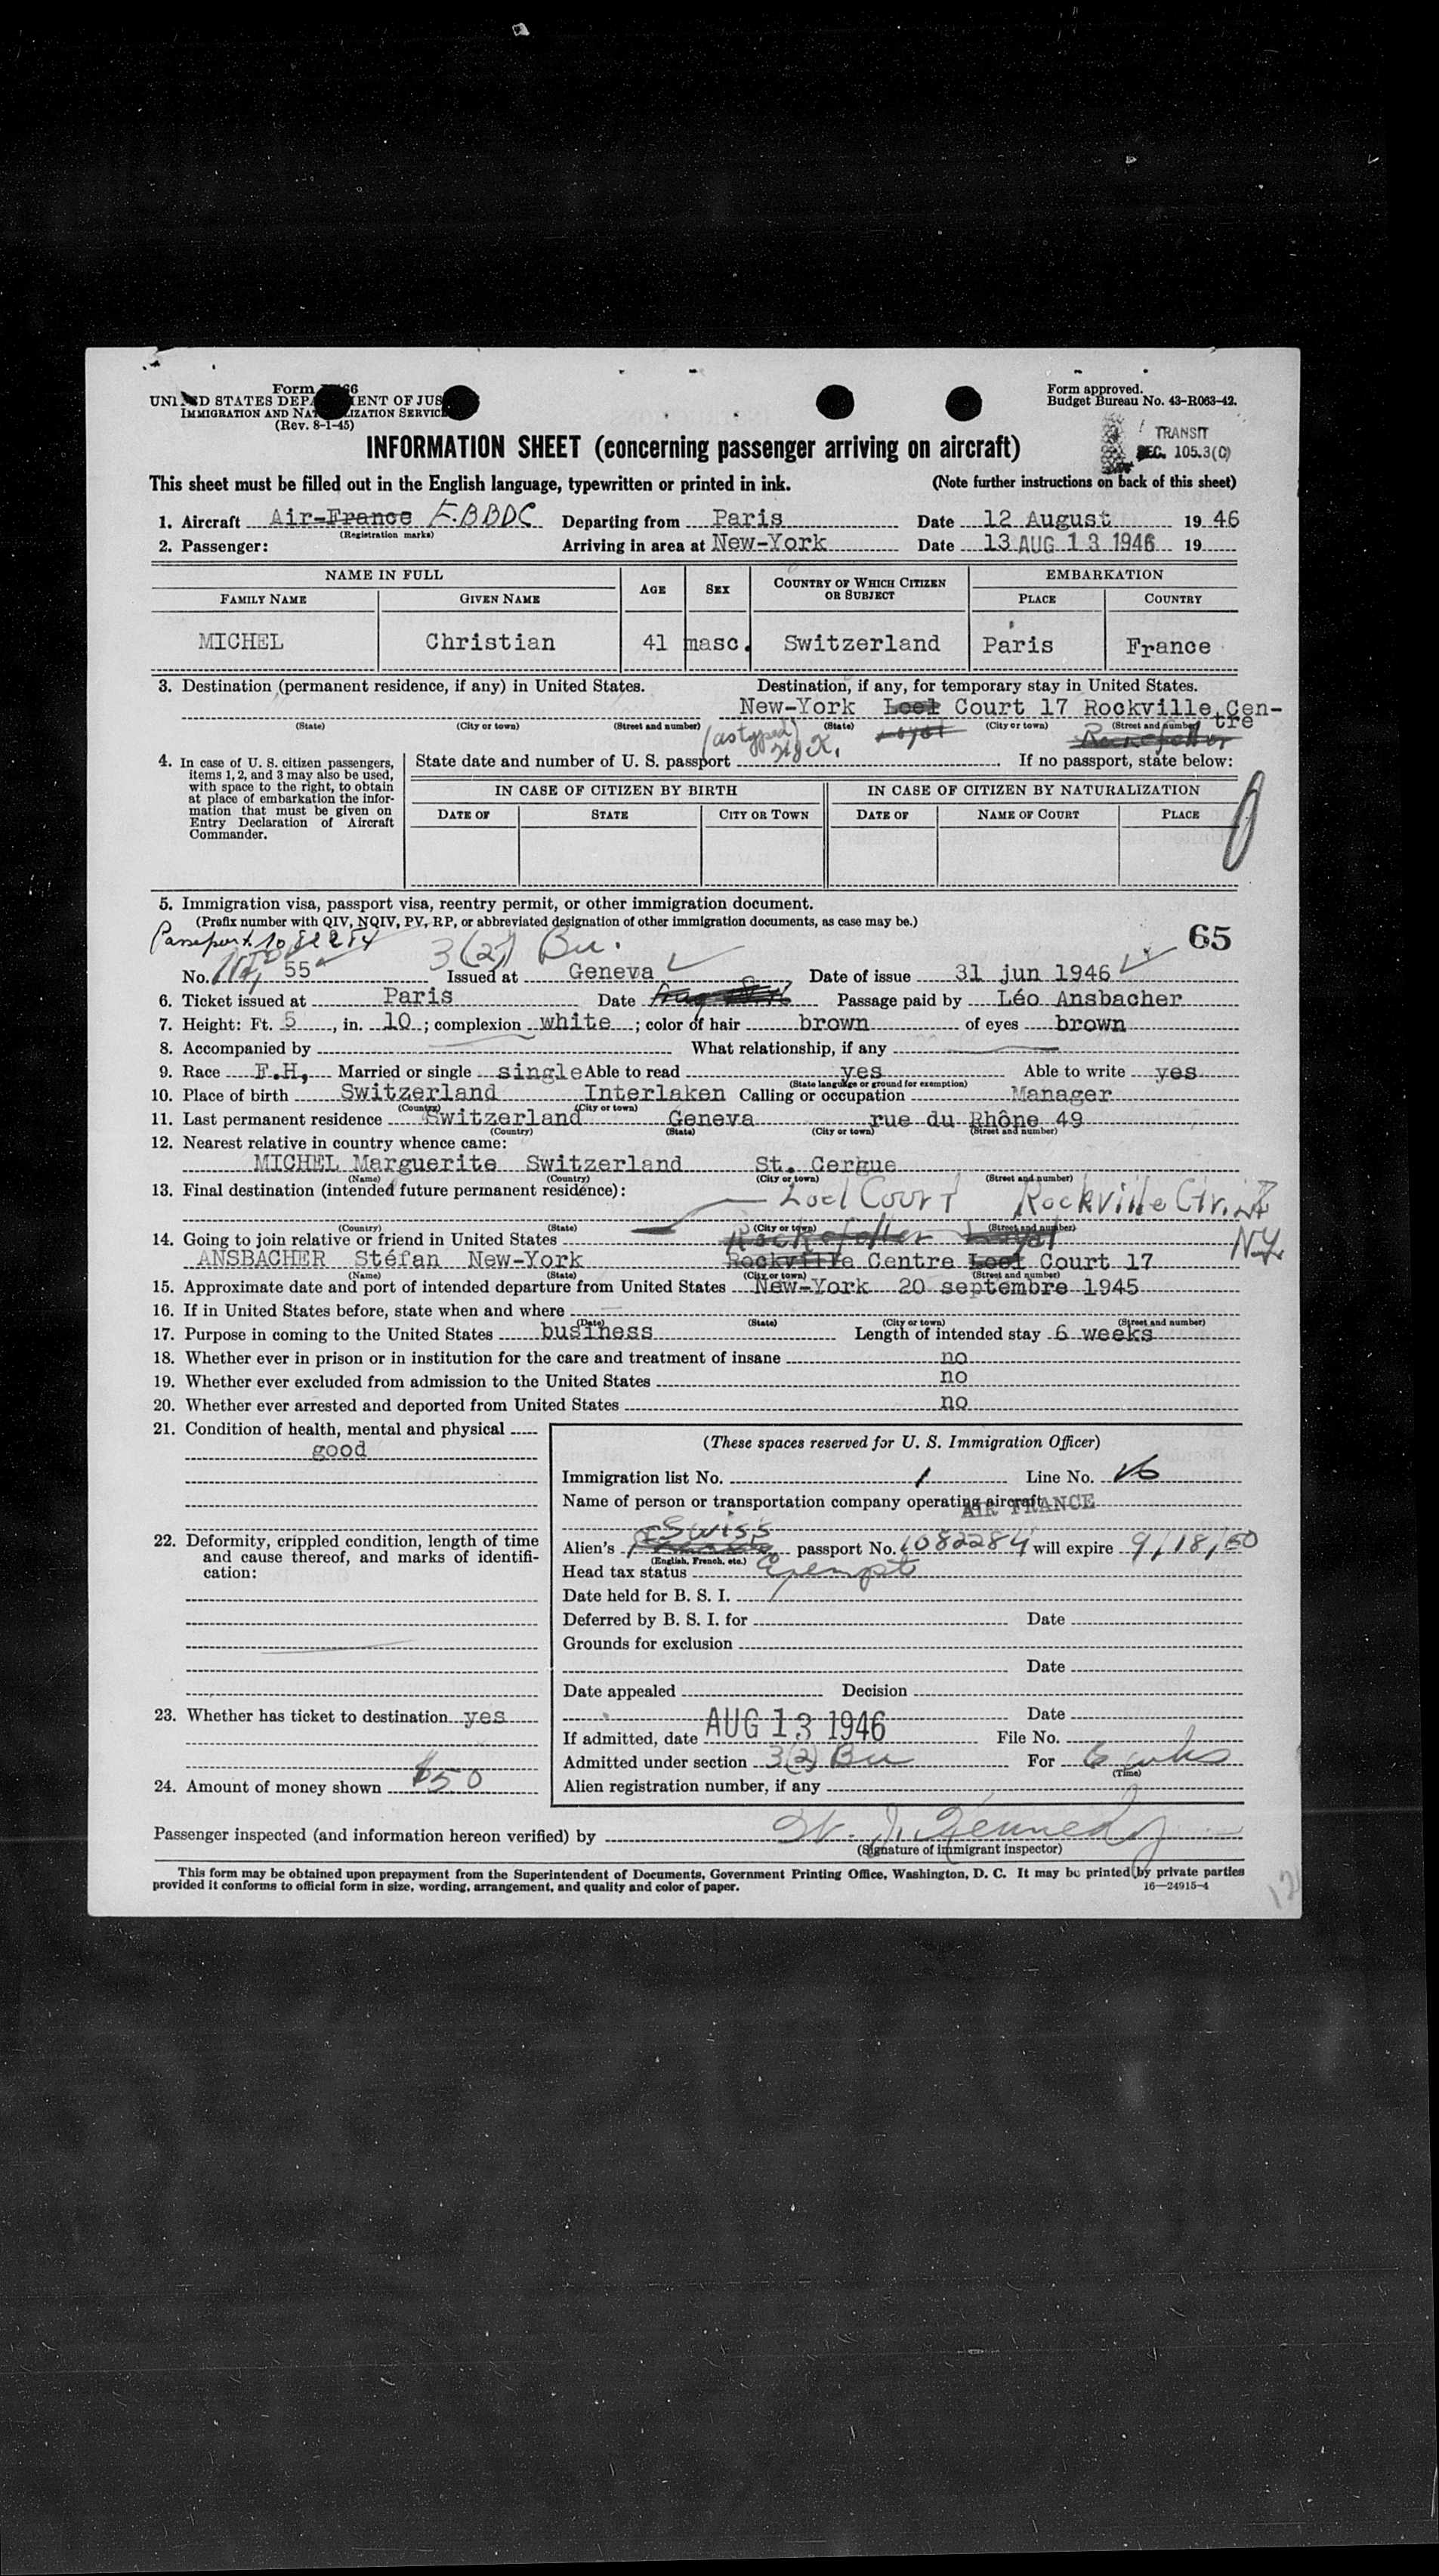 Form 66
UNI D STATES DEPA MENT OF JUS
IMMIGRATION AND NAT LIZATION SERVIC
(Rev. 8-1-45)
Form approved.
Budget Bureau No. 43-R063-42.
TRANSIT
SEC. 105.3(C)
INFORMATION SHEET (concerning passenger arriving on aircraft)
This sheet must be filled out in the English language, typewritten or printed in ink. (Note further instructions on back of this sheet)
1. Aircraft Air-France F.BBDC Departing from Paris Date 12 August 19 46
(Registration marks)
2. Passenger: Arriving in area at New-York Date 13 AUG 13 1946 19
NAME IN FULL AGE SEX COUNTRY OF WHICH CITIZEN OR SUBJECT EMBARKATION
FAMILY NAME GIVEN NAME PLACE COUNTRY
MICHEL Christian 41 masc. Switzerland Paris France
3. Destination (permanent residence, if any) in United States. Destination, if any, for temporary stay in United States.
New-York Loel Court 17 Rockville Cen-
tre
(State) (City or town) (Street and number) (State) (City or town) (Street and number)
(as typed)
4. In case of U. S. citizen passengers, items 1, 2, and 3 may also be used, with space to the right, to obtain at place of embarkation the information that must be given on Entry Declaration of Aircraft Commander.
State date and number of U. S. passport If no passport, state below:
IN CASE OF CITIZEN BY BIRTH IN CASE OF CITIZEN BY NATURALIZATION
DATE OF STATE CITY OR TOWN DATE OF NAME OF COURT PLACE
5. Immigration visa, passport visa, reentry permit, or other immigration document.
(Prefix number with QIV, NQIV, PV, RP, or abbreviated designation of other immigration documents, as case may be.)
65
Passeport 1082284 3(2) Bu.
No. 55 Issued at Geneva Date of issue 31 jun 1946
6. Ticket issued at Paris Date Passage paid by Léo Ansbacher
7. Height: Ft. 5, in. 10; complexion white; color of hair brown of eyes brown
8. Accompanied by What relationship, if any
9. Race F.H, Married or single single Able to read yes Able to write yes
(State language or ground for exemption)
10. Place of birth Switzerland Interlaken Calling or occupation Manager
(Country) (City or town)
11. Last permanent residence Switzerland Geneva rue du Rhône 49
(Country) (State) (City or town) (Street and number)
12. Nearest relative in country whence came:
MICHEL Marguerite Switzerland St. Cergue
(Name) (Country) (City or town) (Street and number)
13. Final destination (intended future permanent residence):
Loel Court Rockville Ctr.
N.Y.
(Country) (State) (City or town) (Street and number)
14. Going to join relative or friend in United States
ANSBACHER Stéfan New-York Rockville Centre Loel Court 17
(Name) (State) (City or town) (Street and number)
15. Approximate date and port of intended departure from United States New-York 20 septembre 1945
16. If in United States before, state when and where
(Date) (State) (City or town) (Street and number)
17. Purpose in coming to the United States business Length of intended stay 6 weeks
18. Whether ever in prison or in institution for the care and treatment of insane no
19. Whether ever excluded from admission to the United States no
20. Whether ever arrested and deported from United States no
21. Condition of health, mental and physical
good
22. Deformity, crippled condition, length of time and cause thereof, and marks of identification:
23. Whether has ticket to destination yes
24. Amount of money shown $50
(These spaces reserved for U. S. Immigration Officer)
Immigration list No. 1 Line No. 16
Name of person or transportation company operating aircraft AIR FRANCE
Swiss
Alien's passport No. 1082284 will expire 9/18/50
(English, French, etc.)
Head tax status Exempt
Date held for B. S. I.
Deferred by B. S. I. for Date
Grounds for exclusion
Date
Date appealed Decision
Date
If admitted, date AUG 13 1946 File No.
Admitted under section 3(2) Bu For 6 wks
(Time)
Alien registration number, if any
Passenger inspected (and information hereon verified) by W. J. Kennedy
(Signature of immigrant inspector)
This form may be obtained upon prepayment from the Superintendent of Documents, Government Printing Office, Washington, D. C. It may be printed by private parties
provided it conforms to official form in size, wording, arrangement, and quality and color of paper. 16—24915-4